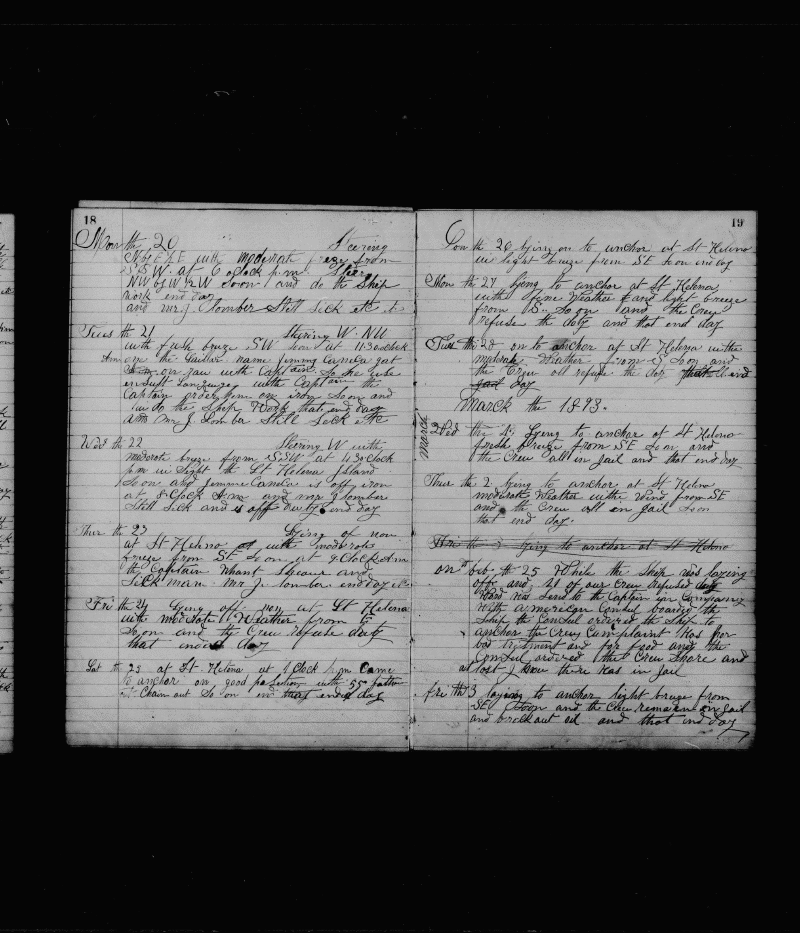 18
Mon th 20 Steering
NbyE½E with moderate breze from
SSW. at 6 oclock p.m. Steer
NW by W½W So on and do the Ship
Work end day
and mr J. Lomber Still Sick etc
Tues th 21 Stering W. NW
with fresh breze SW at 11.30 oclock
Am on the Sailor name Jimmy Canela gat
on raw with Captain So he use
Languege with Captain the
Captain order him on iron So on and
do the Ship Work that end day
and Mr J Lomber Still Sick etc
Wed th 22 Stering W with
moderate breze from SSW at 4.30 oclock
pm in Sight the St Helena Island
So on and Jimmie Canela is off iron
at 8 Clock A.m and mr J Lomber
Still Sick and is off duty end day
Thur th 23 Lying of non
at St Heleno with moderate
breeze from SE So on at 9 Clock Am
the Captain Whant Shoare and
Sick man. Mr J. Lomber end day etc
Fri th 24 Lying off non at St Helena
with moderate Weather from
So on and the Crew refuse duty
that end day
Sat th at St. Helena at 1 Clock p.m Came
to anchor on good position with 55 fathom
Chain out So on end that end day
19
Son th 26 lying on to anchor at St Heleno
light breze from SE So on end day
Mon th 27 lying to anchor at St Helena
with fine Weather and light breeze
from S. So on and the Crew
refuse the duty and that end day
Tues th 28 on to anchor at St Helena with
moderate Weather from S So on and
the Crew all refuse the duty that end
day
March the 1893.
March
Wed th 1. Lying to anchor at St Heleno
fresh breeze from SE So on and
the Crew all in Jail and that end day
Thur th 2 lying to anchor at St Helena
moderate Weather with Wind from SE
and the Crew all on Jail So on
that end day.
Fri the 3 lying to anchor at St Heleno
on feb. th 25 While the Ship was laying
off and of our Crew refused duty
Word was Send to the Captain in Company
With american Consul boarded the
Ship the Consul ordered the Ship to
anchor the Crew Complaint Was for
bad tretment and for food and the
Consul ordered the Crew Shore and
at last I know there Was in Jail
fri th 3 laying to anchor light breeze from
SE So on and the Crew remain on Jail
and brock out oil and that end day